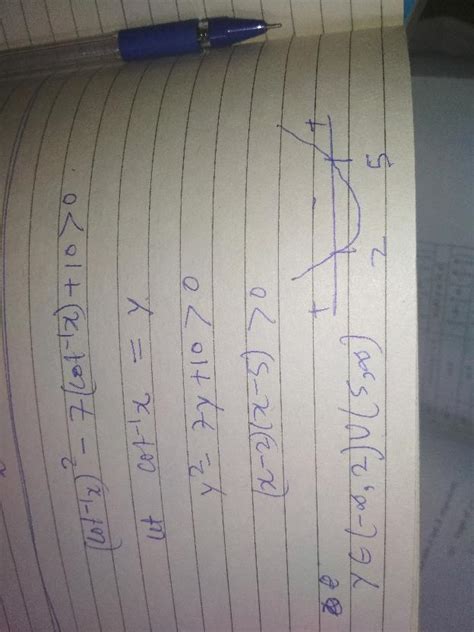 (cot⁻¹x)² - 7(cot⁻¹x) + 10 > 0
let cot⁻¹x = y
y² - 7y + 10 > 0
(x-2)(x-5) > 0
+ - +
2 5
y ∈ (-∞, 2) ∪ (5, ∞)